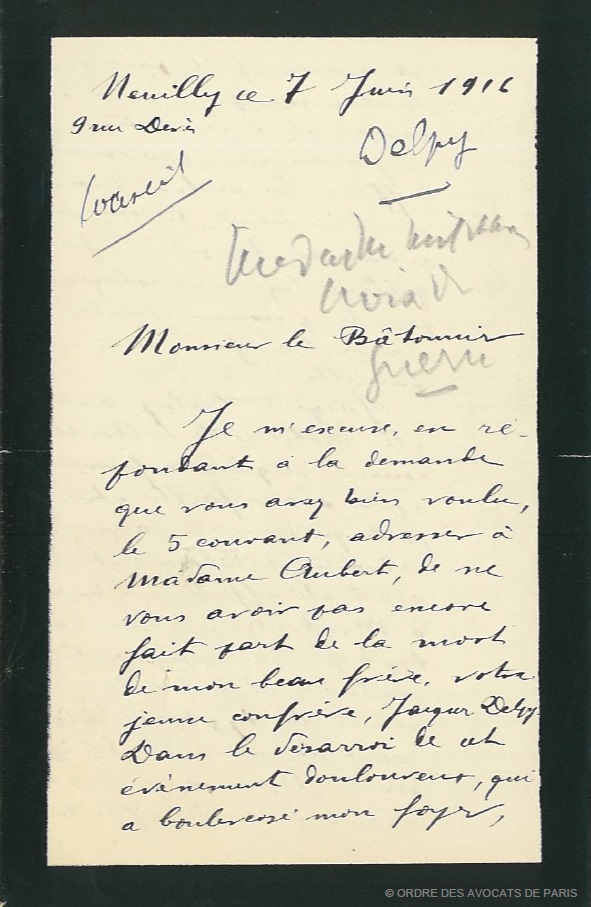 Neuilly ce 7 Juin 1916
9 rue Devès
Delpy
Conseil
Guerre
Monsieur le Bâtonnier
Je m'excuse, en ré-
pondant à la demande
que vous avez bien voulu,
le 5 courant, adresser à
Madame Aubert, de ne
vous avoir pas encore
fait part de la mort
de mon beau frère, votre
jeune confrère, Jacques Delpy.
Dans le désarroi de cet
évènement douloureux, qui
a bouleversé mon foyer,
© ORDRE DES AVOCATS DE PARIS